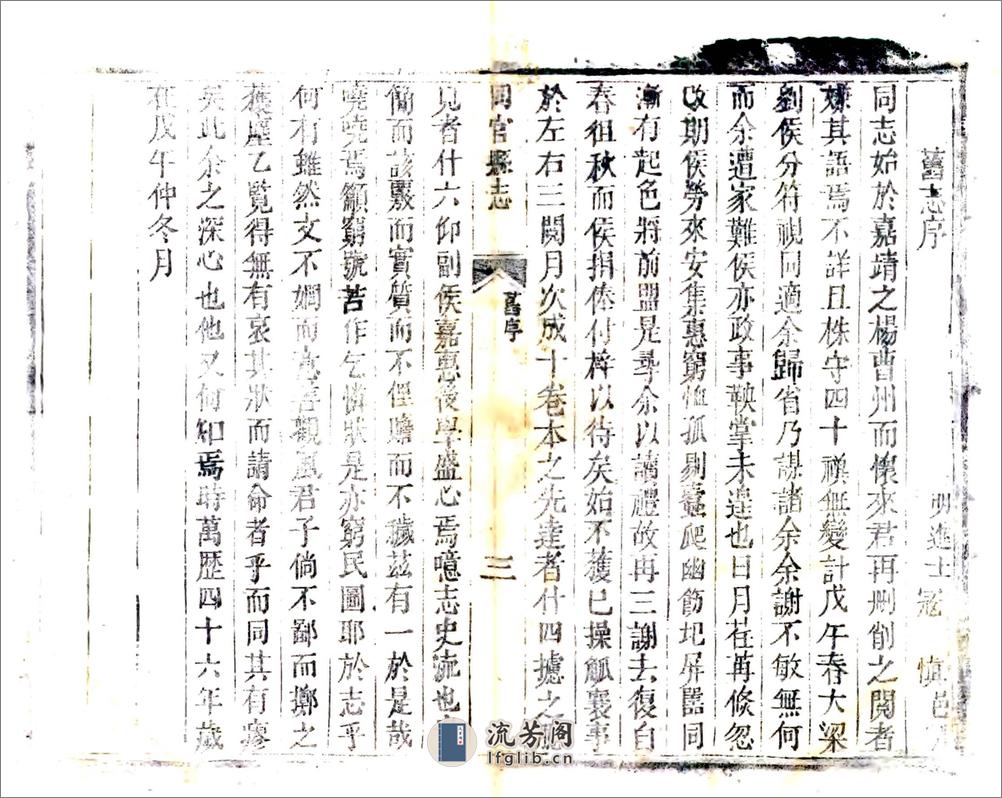 舊志序
明進士寇慎邑
同志始於嘉靖之楊曹州而懷來君再刪削之閱者
嫌其語焉不詳且株守四十禩無變計戊午春大梁
劉侯分符視同適余歸省乃謀諸余余謝不敏無何
而余遭家難侯亦政事鞅掌未遑也日月荏苒倏忽
改期侯勞來安集惠窮恤孤剔蠹爬幽節圮屏嚚同
漸有起色將前盟是尋余以讀禮故再三謝去復自
春徂秋而侯捐俸付梓以待矣始不獲已操觚襄事
於左右三閱月次成十卷本之先達者什四摭之
同官縣志
舊序
三
見者什六仰副侯嘉惠後學盛心焉噫志史流也
簡而該覈而實質而不俚贍而不穢茲有一於是哉
嘵嘵焉籲窮號苦作乞憐狀是亦窮民圖耶於志乎
何有雖然文不嫻而意善觀風君子倘不鄙而擲之
乙覽得無有哀其狀而請命者乎而同其有瘳
矣此余之深心也他又何知焉時萬歷四十六年歲
在戊午仲冬月
流芳阁
lfglib.cn